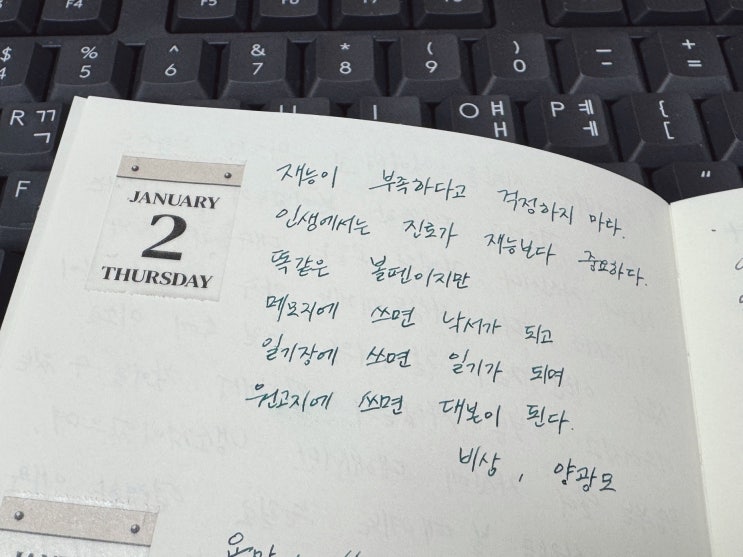 F4
F5
F6
F7
F8
$ 4
% 5
^ 6
& 7
* 8
( 9
) 0
_ -
+ =
R ㄲ ㄱ
U
I
O ㅒ ㅐ
P ㅖ ㅔ
{ [
F
"
JANUARY
2
THURSDAY
재능이 부족하다고 걱정하지 마라.
인생에서는 진로가 재능보다 중요하다.
똑같은 볼펜이지만
메모지에 쓰면 낙서가 되고
일기장에 쓰면 일기가 되며
원고지에 쓰면 대본이 된다.
비상, 양광모